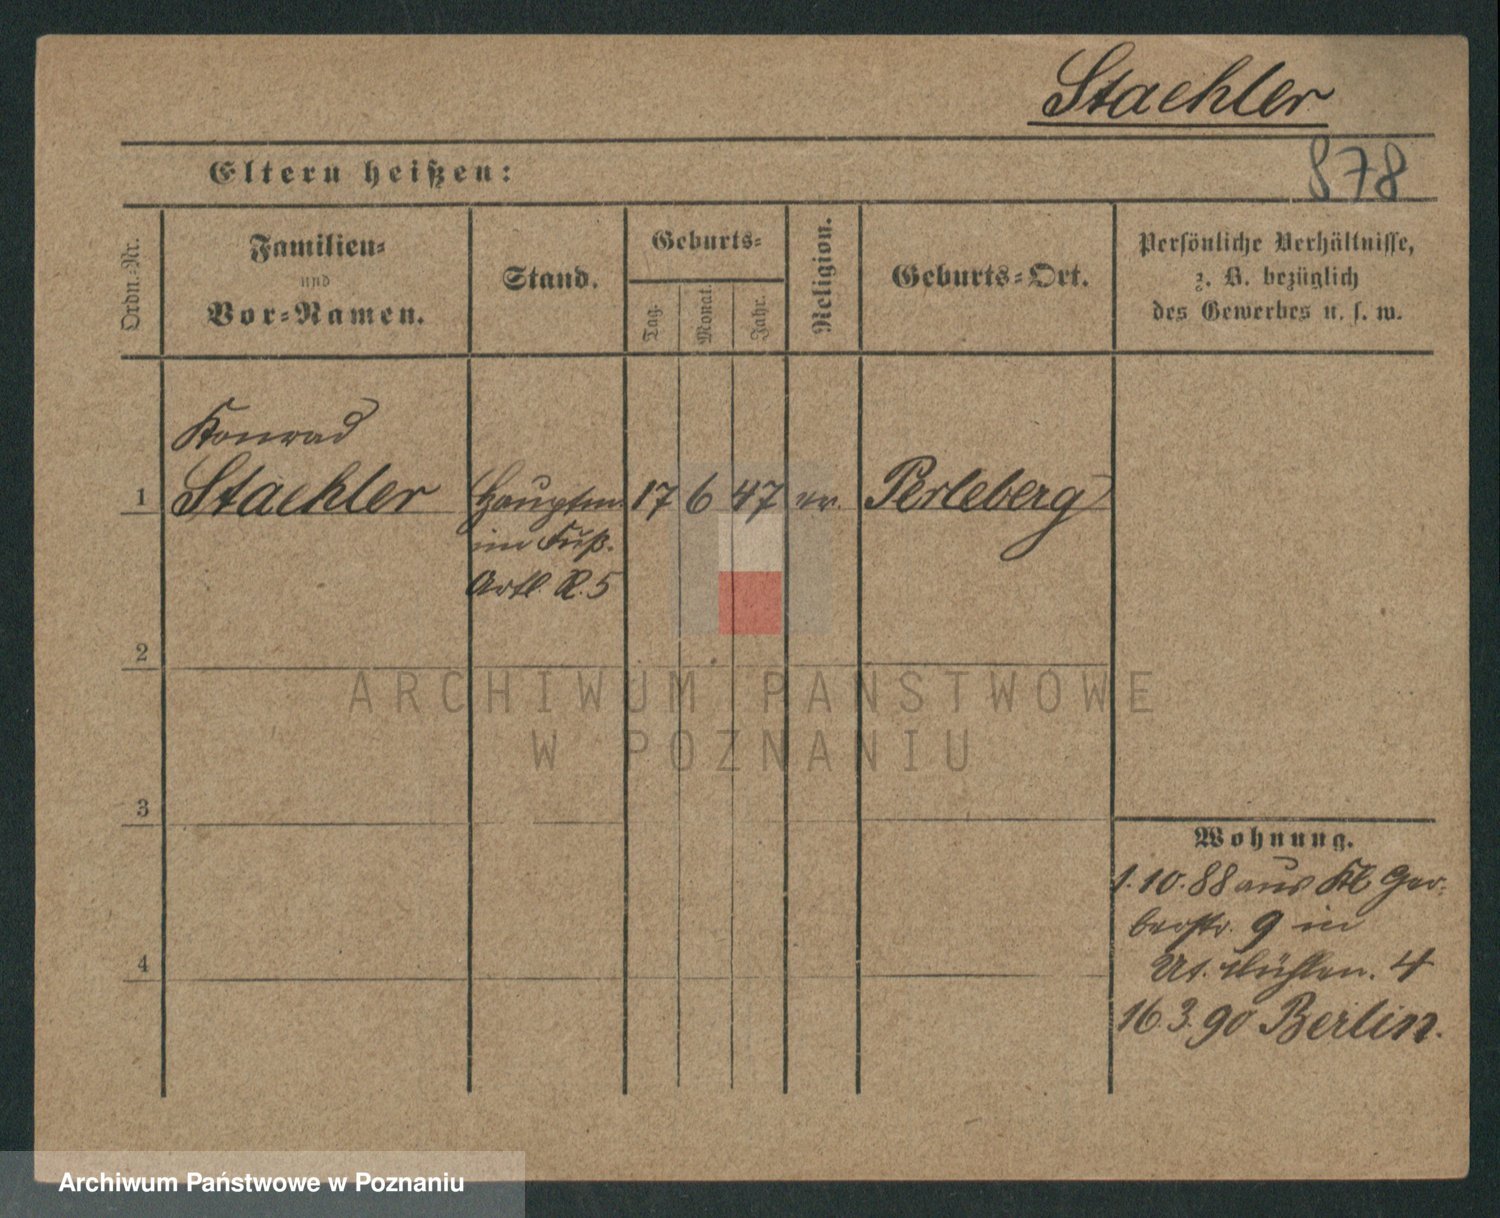 Staehler
Eltern heißen:
878
Ordn.-Nr.
Familien-
und
Vor-Namen.
Stand.
Geburts-
Tag.
Monat.
Jahr.
Religion.
Geburts-Ort.
Persönliche Verhältnisse,
z. B. bezüglich
des Gewerbes u. s. w.
Konrad
1 Staehler Hauptm. 17 6 47 ev. Perleberg
im Fuß.
Artl. R. 5
2
3
4
Wohnung.
1.10.88 aus Kl. Ger-
berstr. 9 in
Ut. Mühlen. 4
16.3.90 Berlin.
ARCHIWUM PAŃSTWOWE
W POZNANIU
Archiwum Państwowe w Poznaniu